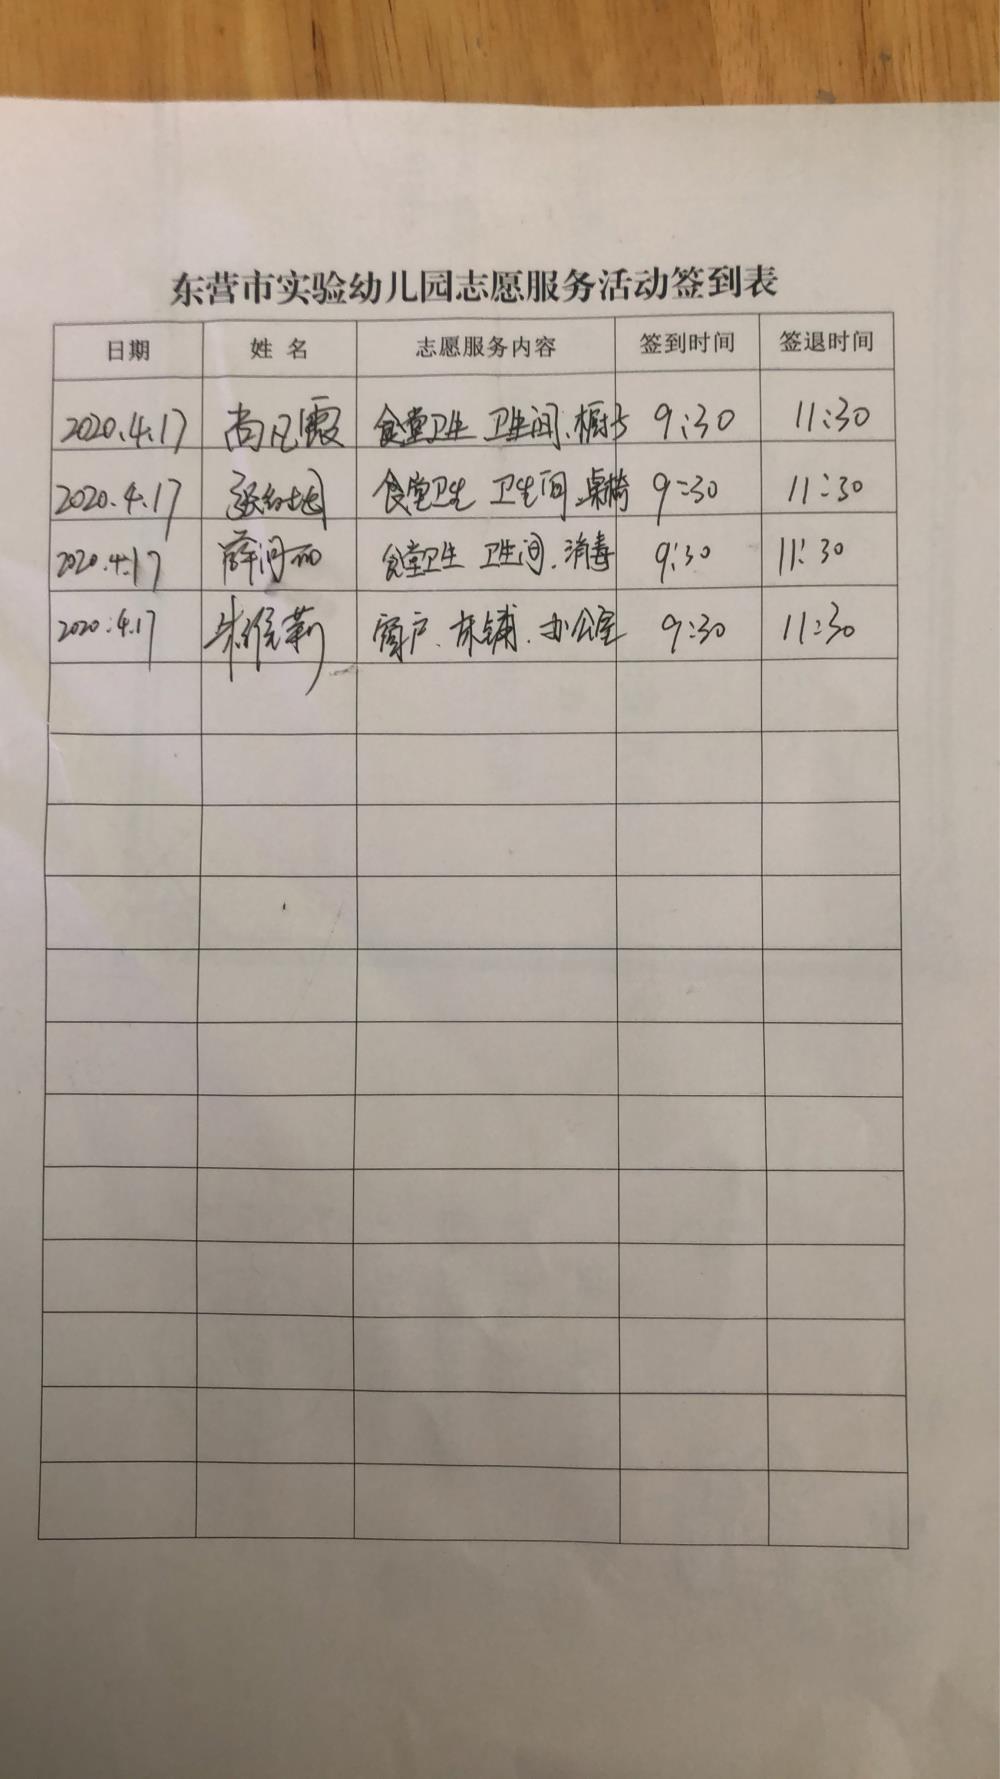 东营市实验幼儿园志愿服务活动签到表
日期 姓名 志愿服务内容 签到时间 签退时间
2020.4.17 尚凡霞 食堂卫生 卫生间、橱 9:30 11:30
2020.4.17 食堂卫生 卫生间 桌椅 9:30 11:30
2020.4.17 薛 食堂卫生 卫生间、消毒 9:30 11:30
2020.4.17 朱 莉 窗户、床铺、办公室 9:30 11:30